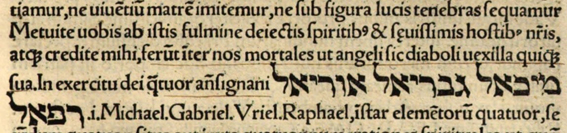 tiamur, ne uiuẽtiũ matrẽ imitemur, ne sub figura lucis tenebras sequamur
Metuite uobis ab istis fulmine deiectis spiritibꝰ & sęuissimis hostibꝰ nr̃is,
atqꝫ credite mihi, ferũt ĩter nos mortales ut angeli sic diaboli uexilla quiqꝫ
sua. In exercitu dei q̃tuor añsignani מיכאל גבריאל אוריאל
רפאל .i. Michael. Gabriel. Vriel. Raphael, ĩstar elemẽtorũ quatuor, se